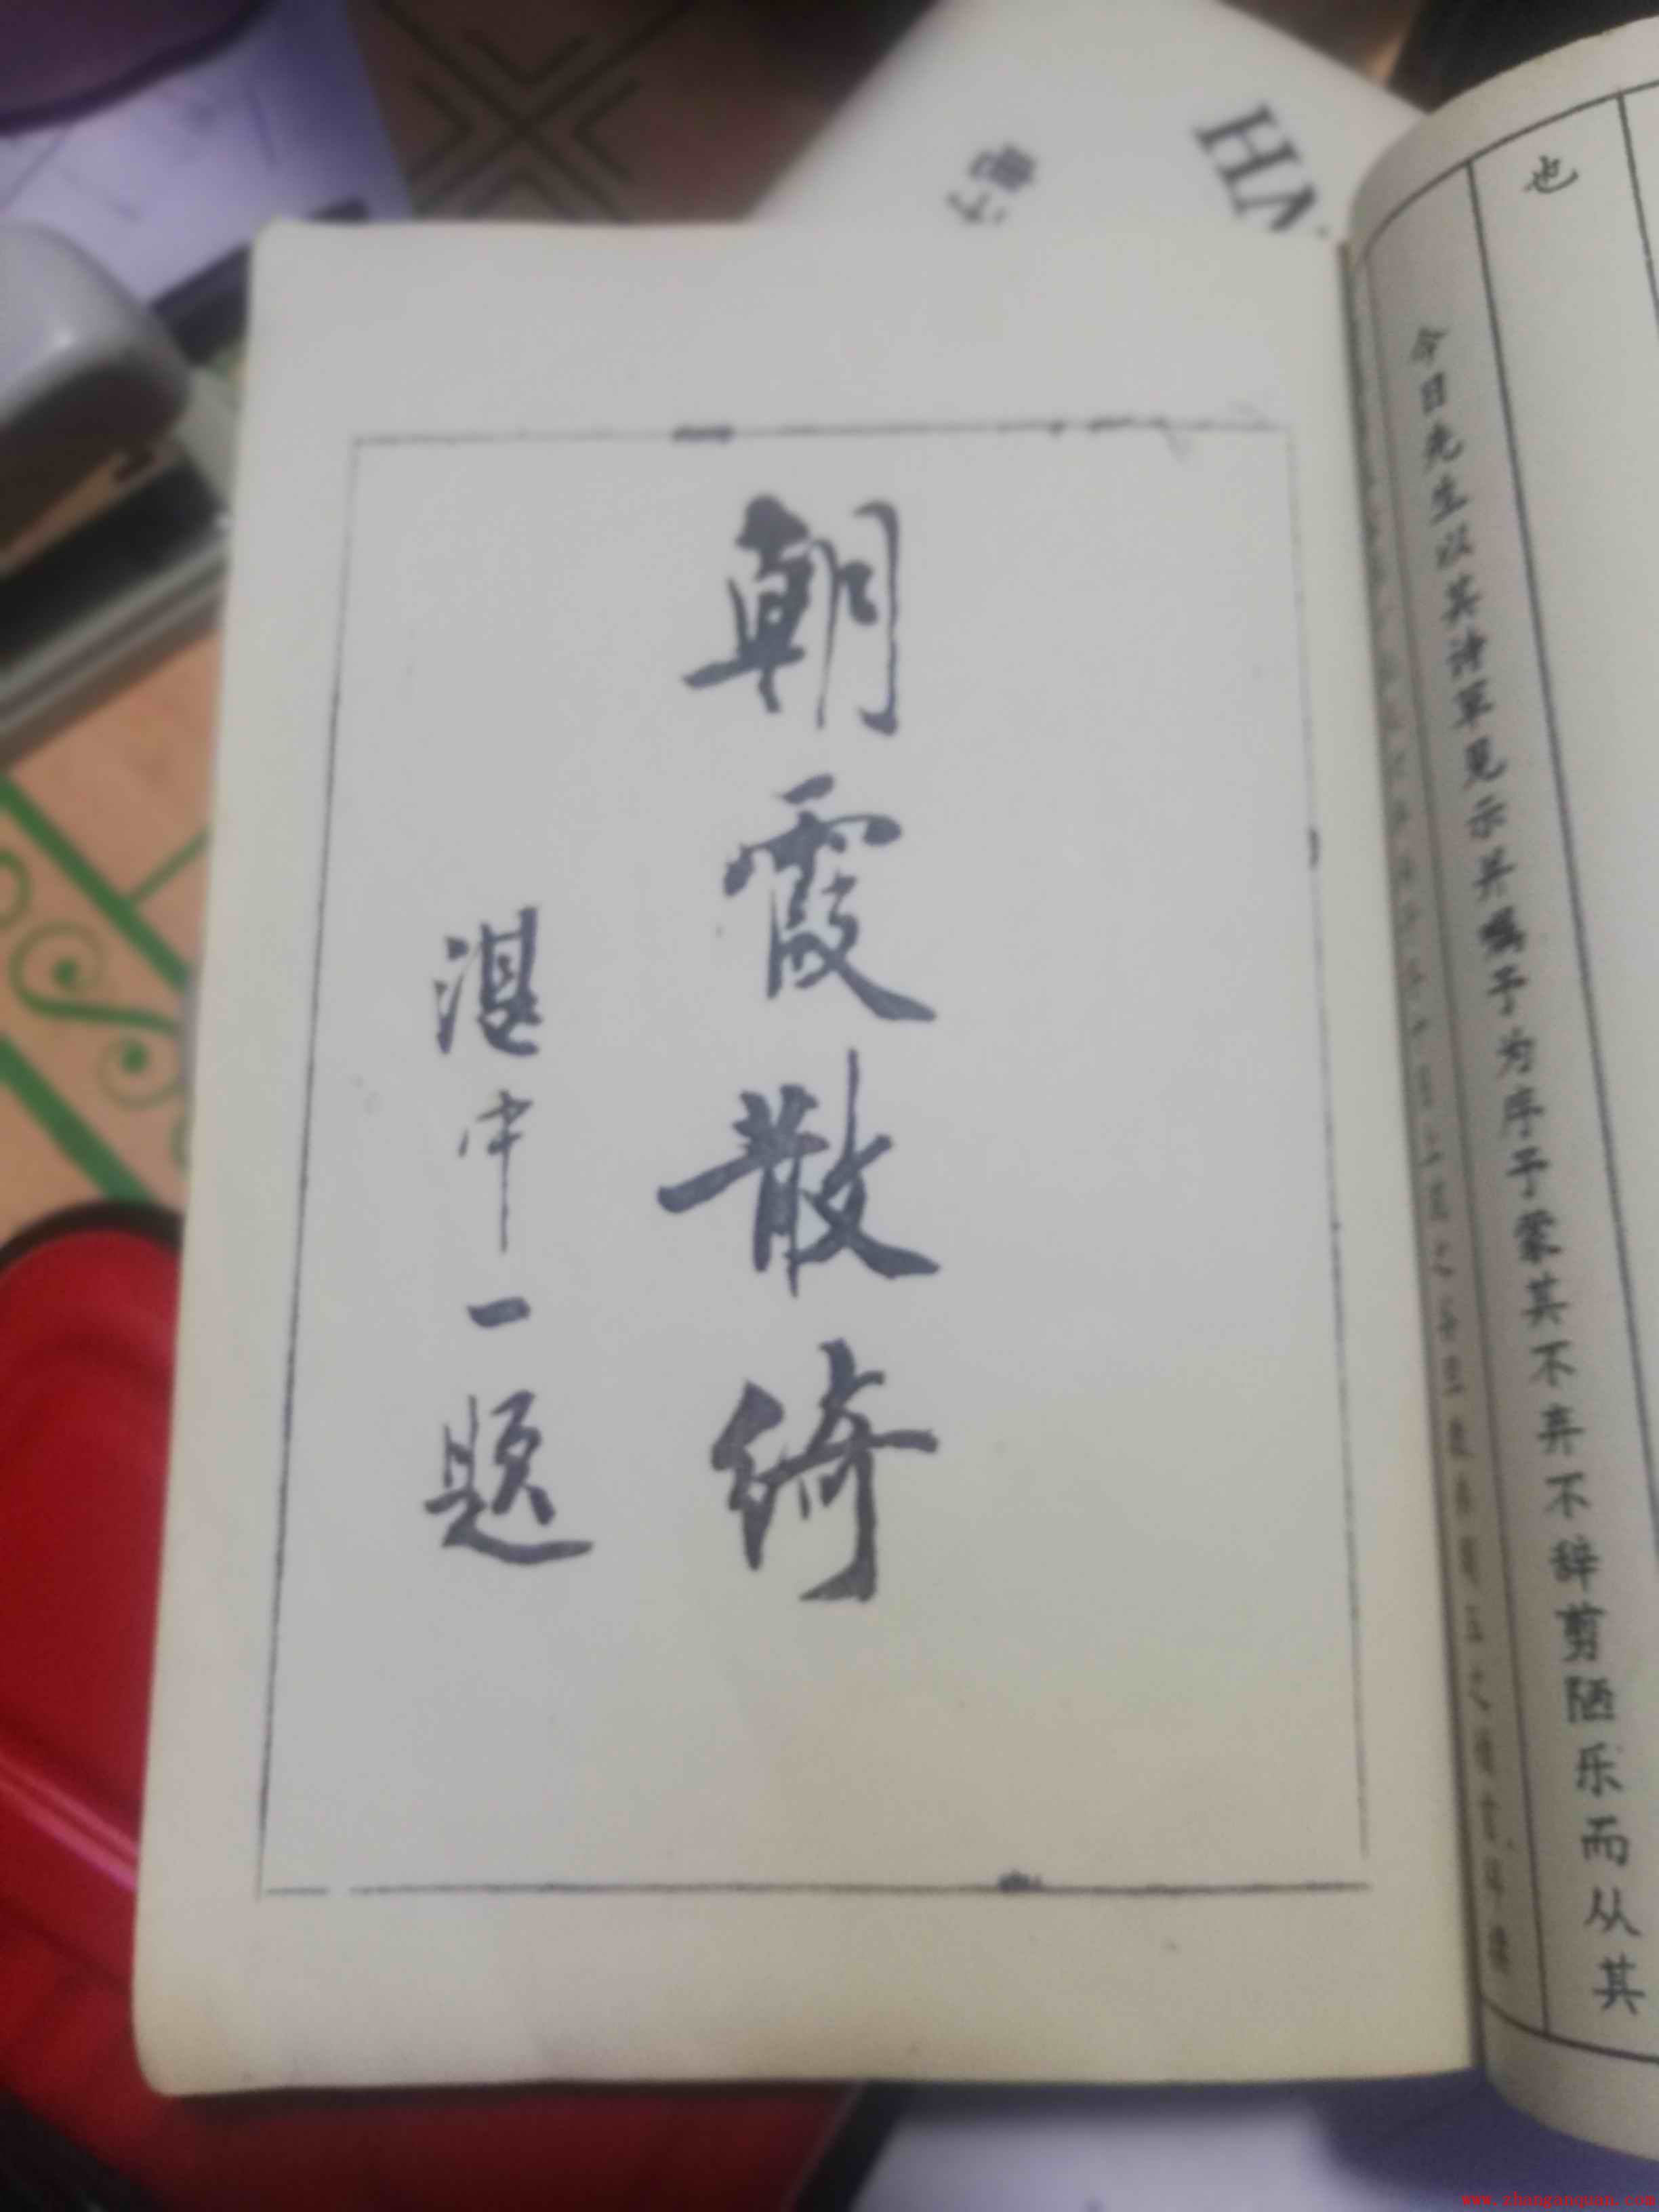 也
今日先生以其诗草见示并嘱予为序予蒙其不弃不辞剪陋乐而从其
朝霞散绮
湛中一题
HA
www.zhanganquan.com